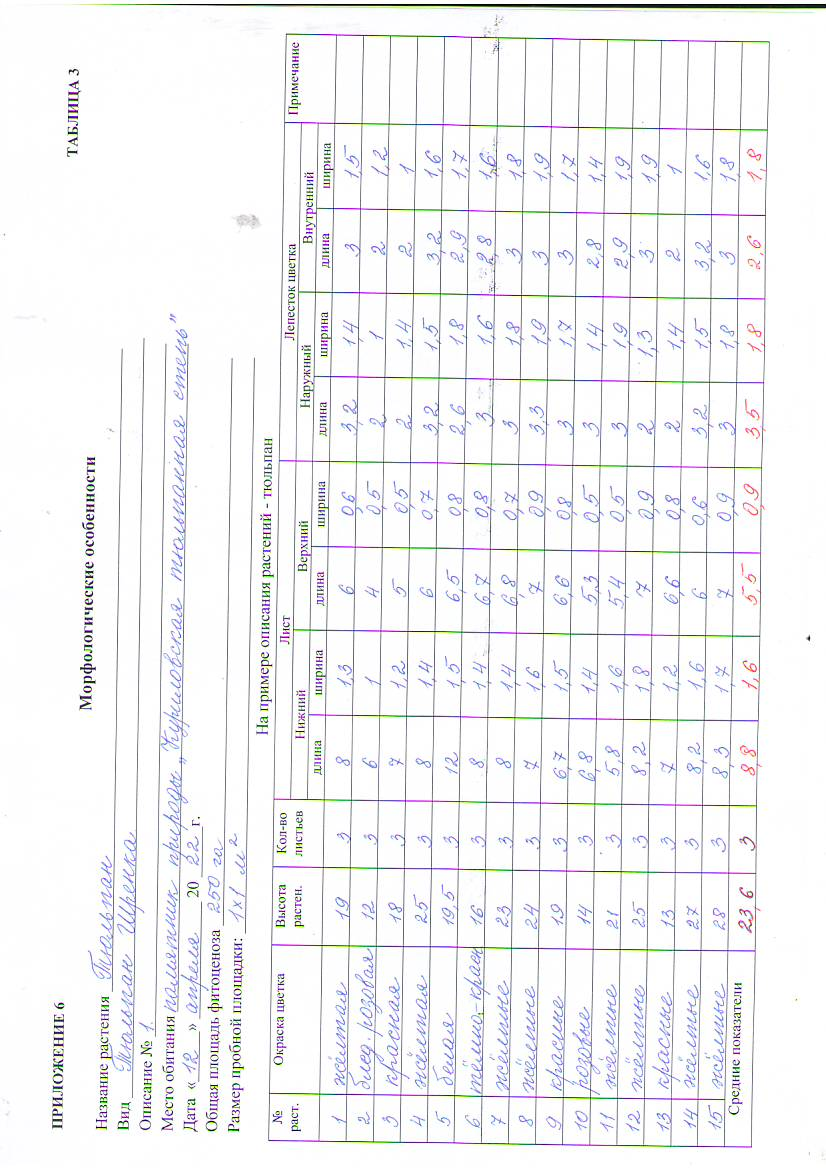 ПРИЛОЖЕНИЕ 6
ТАБЛИЦА 3
Морфологические особенности
Название растения Тюльпан
Вид Тюльпан Шренка
Описание № 1.
Место обитания памятник природы „Куриловская тюльпанная степь”
Дата « 12 » апреля 20 22 г.
Общая площадь фитоценоза 250 га
Размер пробной площадки: 1х1 м²
На примере описания растений - тюльпан
№ раст. Окраска цветка Высота растен. Кол-во листьев Лист Лепесток цветка Примечание
Нижний Верхний Наружный Внутренний
длина ширина длина ширина длина ширина длина ширина
1 жёлтая 19 3 8 1,3 6 0,6 3,2 1,4 3 1,5
2 блед. розовая 12 3 6 1 4 0,5 2 1 2 1,2
3 красная 18 3 7 1,2 5 0,5 2 1,4 2 1
4 жёлтая 25 3 8 1,4 6 0,7 3,2 1,5 3,2 1,6
5 белая 19,5 3 12 1,5 6,5 0,8 2,6 1,8 2,9 1,7
6 тёмно-красн 16 3 8 1,4 6,7 0,8 3 1,6 2,8 1,6
7 жёлтые 23 3 8 1,4 6,8 0,7 3 1,8 3 1,8
8 жёлтые 24 3 7 1,6 7 0,9 3,3 1,9 3 1,9
9 красные 19 3 6,7 1,5 6,6 0,8 3 1,7 3 1,7
10 розовые 14 3 6,8 1,4 5,3 0,5 3 1,4 2,8 1,4
11 жёлтые 21 3 5,8 1,6 5,4 0,5 3 1,9 2,9 1,9
12 жёлтые 25 3 8,2 1,8 7 0,9 2 1,3 3 1,9
13 красные 13 3 7 1,2 6,6 0,8 2 1,4 2 1
14 жёлтые 27 3 8,2 1,6 6 0,6 3,2 1,5 3,2 1,6
15 жёлтые 28 3 8,3 1,7 7 0,9 3 1,8 3 1,8
Средние показатели 23,6 3 8,8 1,6 5,5 0,9 3,5 1,8 2,6 1,8